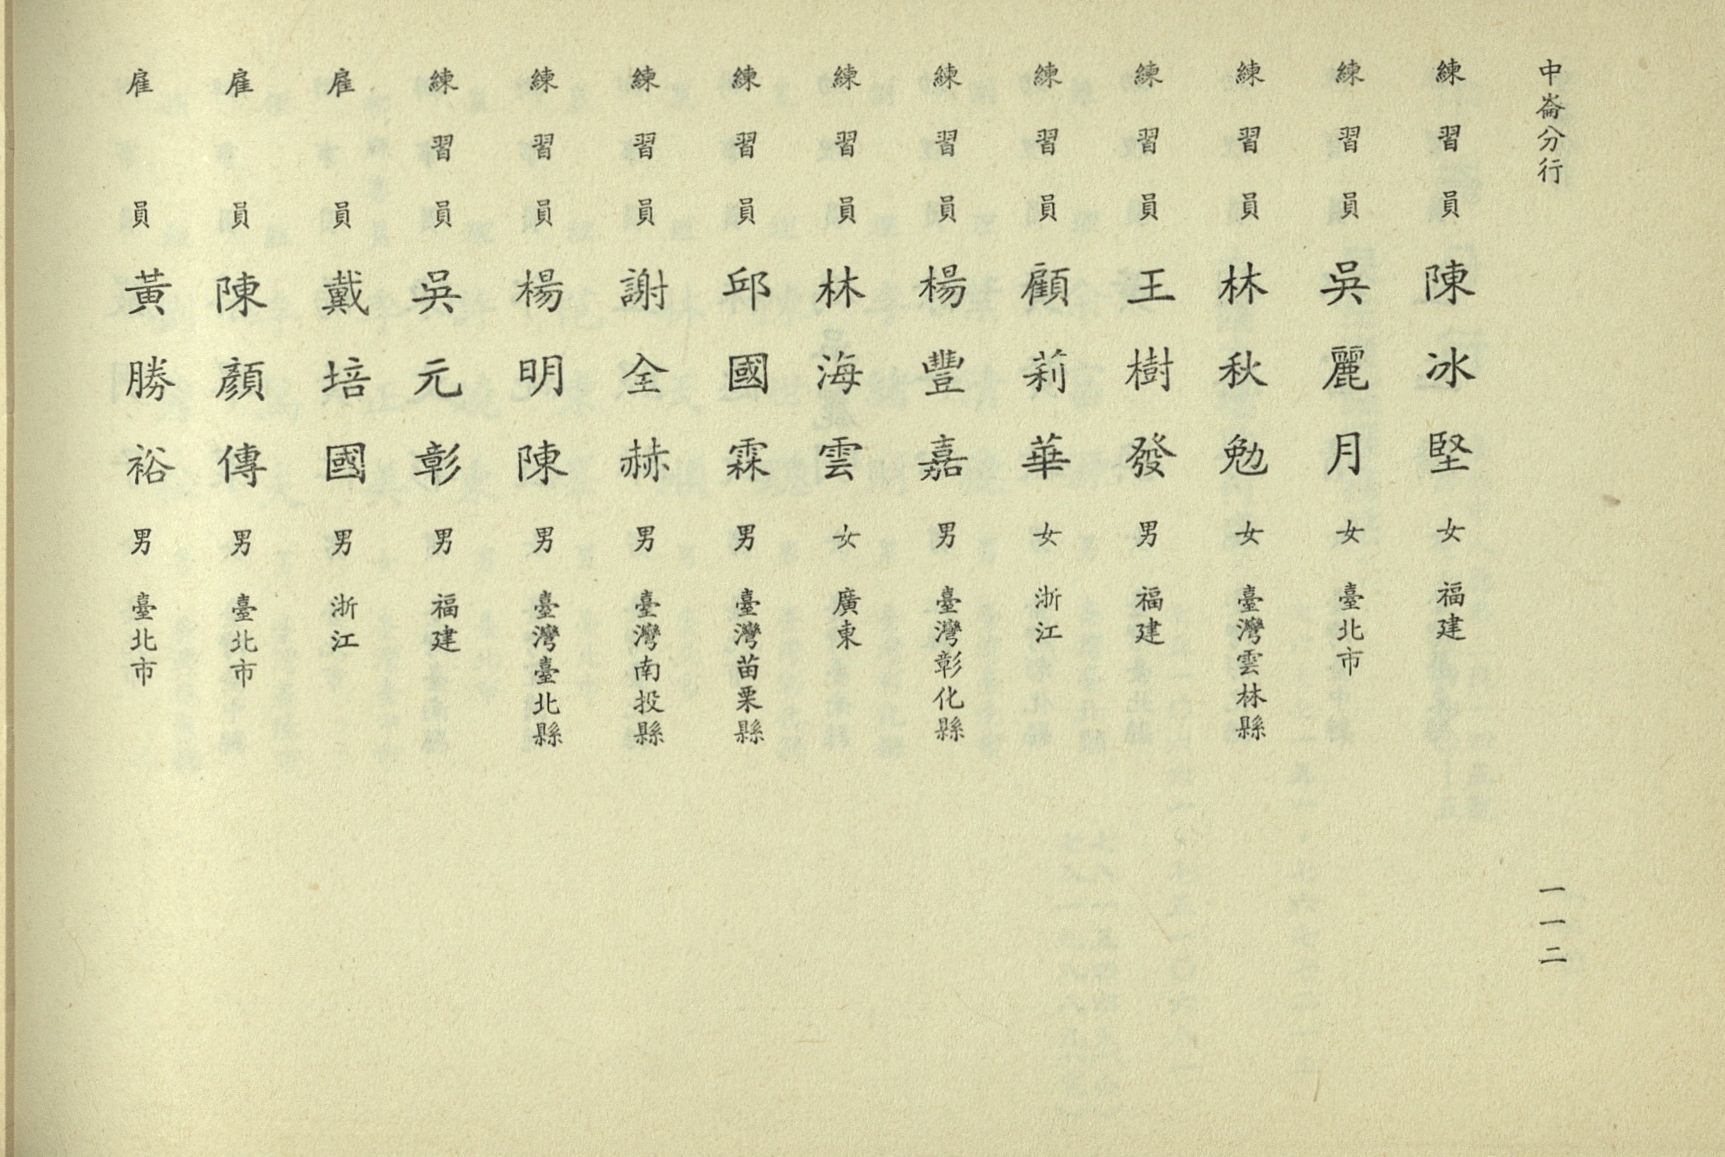 中崙分行
一一二
練習員 陳冰堅 女 福建
練習員 吳麗月 女 臺北市
練習員 林秋勉 女 臺灣雲林縣
練習員 王樹發 男 福建
練習員 顧莉華 女 浙江
練習員 楊豐嘉 男 臺灣彰化縣
練習員 林海雲 女 廣東
練習員 邱國霖 男 臺灣苗栗縣
練習員 謝全赫 男 臺灣南投縣
練習員 楊明陳 男 臺灣臺北縣
練習員 吳元彰 男 福建
雇員 戴培國 男 浙江
雇員 陳顏傳 男 臺北市
雇員 黃勝裕 男 臺北市